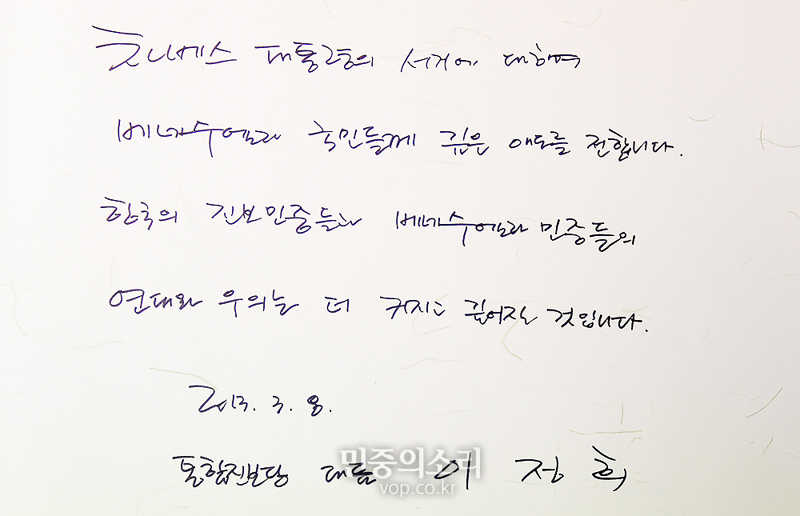 차베스 대통령의 서거에 대하여
베네수엘라 국민들께 깊은 애도를 전합니다.
한국의 진보민중들과 베네수엘라 민중들의
연대와 우의는 더 커지고 깊어지는 것입니다.
2013. 3. 8.
통합진보당 대표 이정희
민중의소리
vop.co.kr